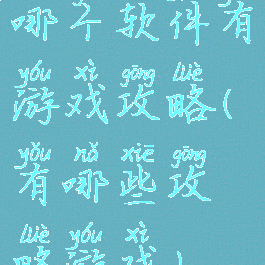 哪个软件有
yóu xì gōng lüè
游戏攻略(
yǒu nǎ xiē gōng
有哪些攻
lüè yóu xì
略游戏)